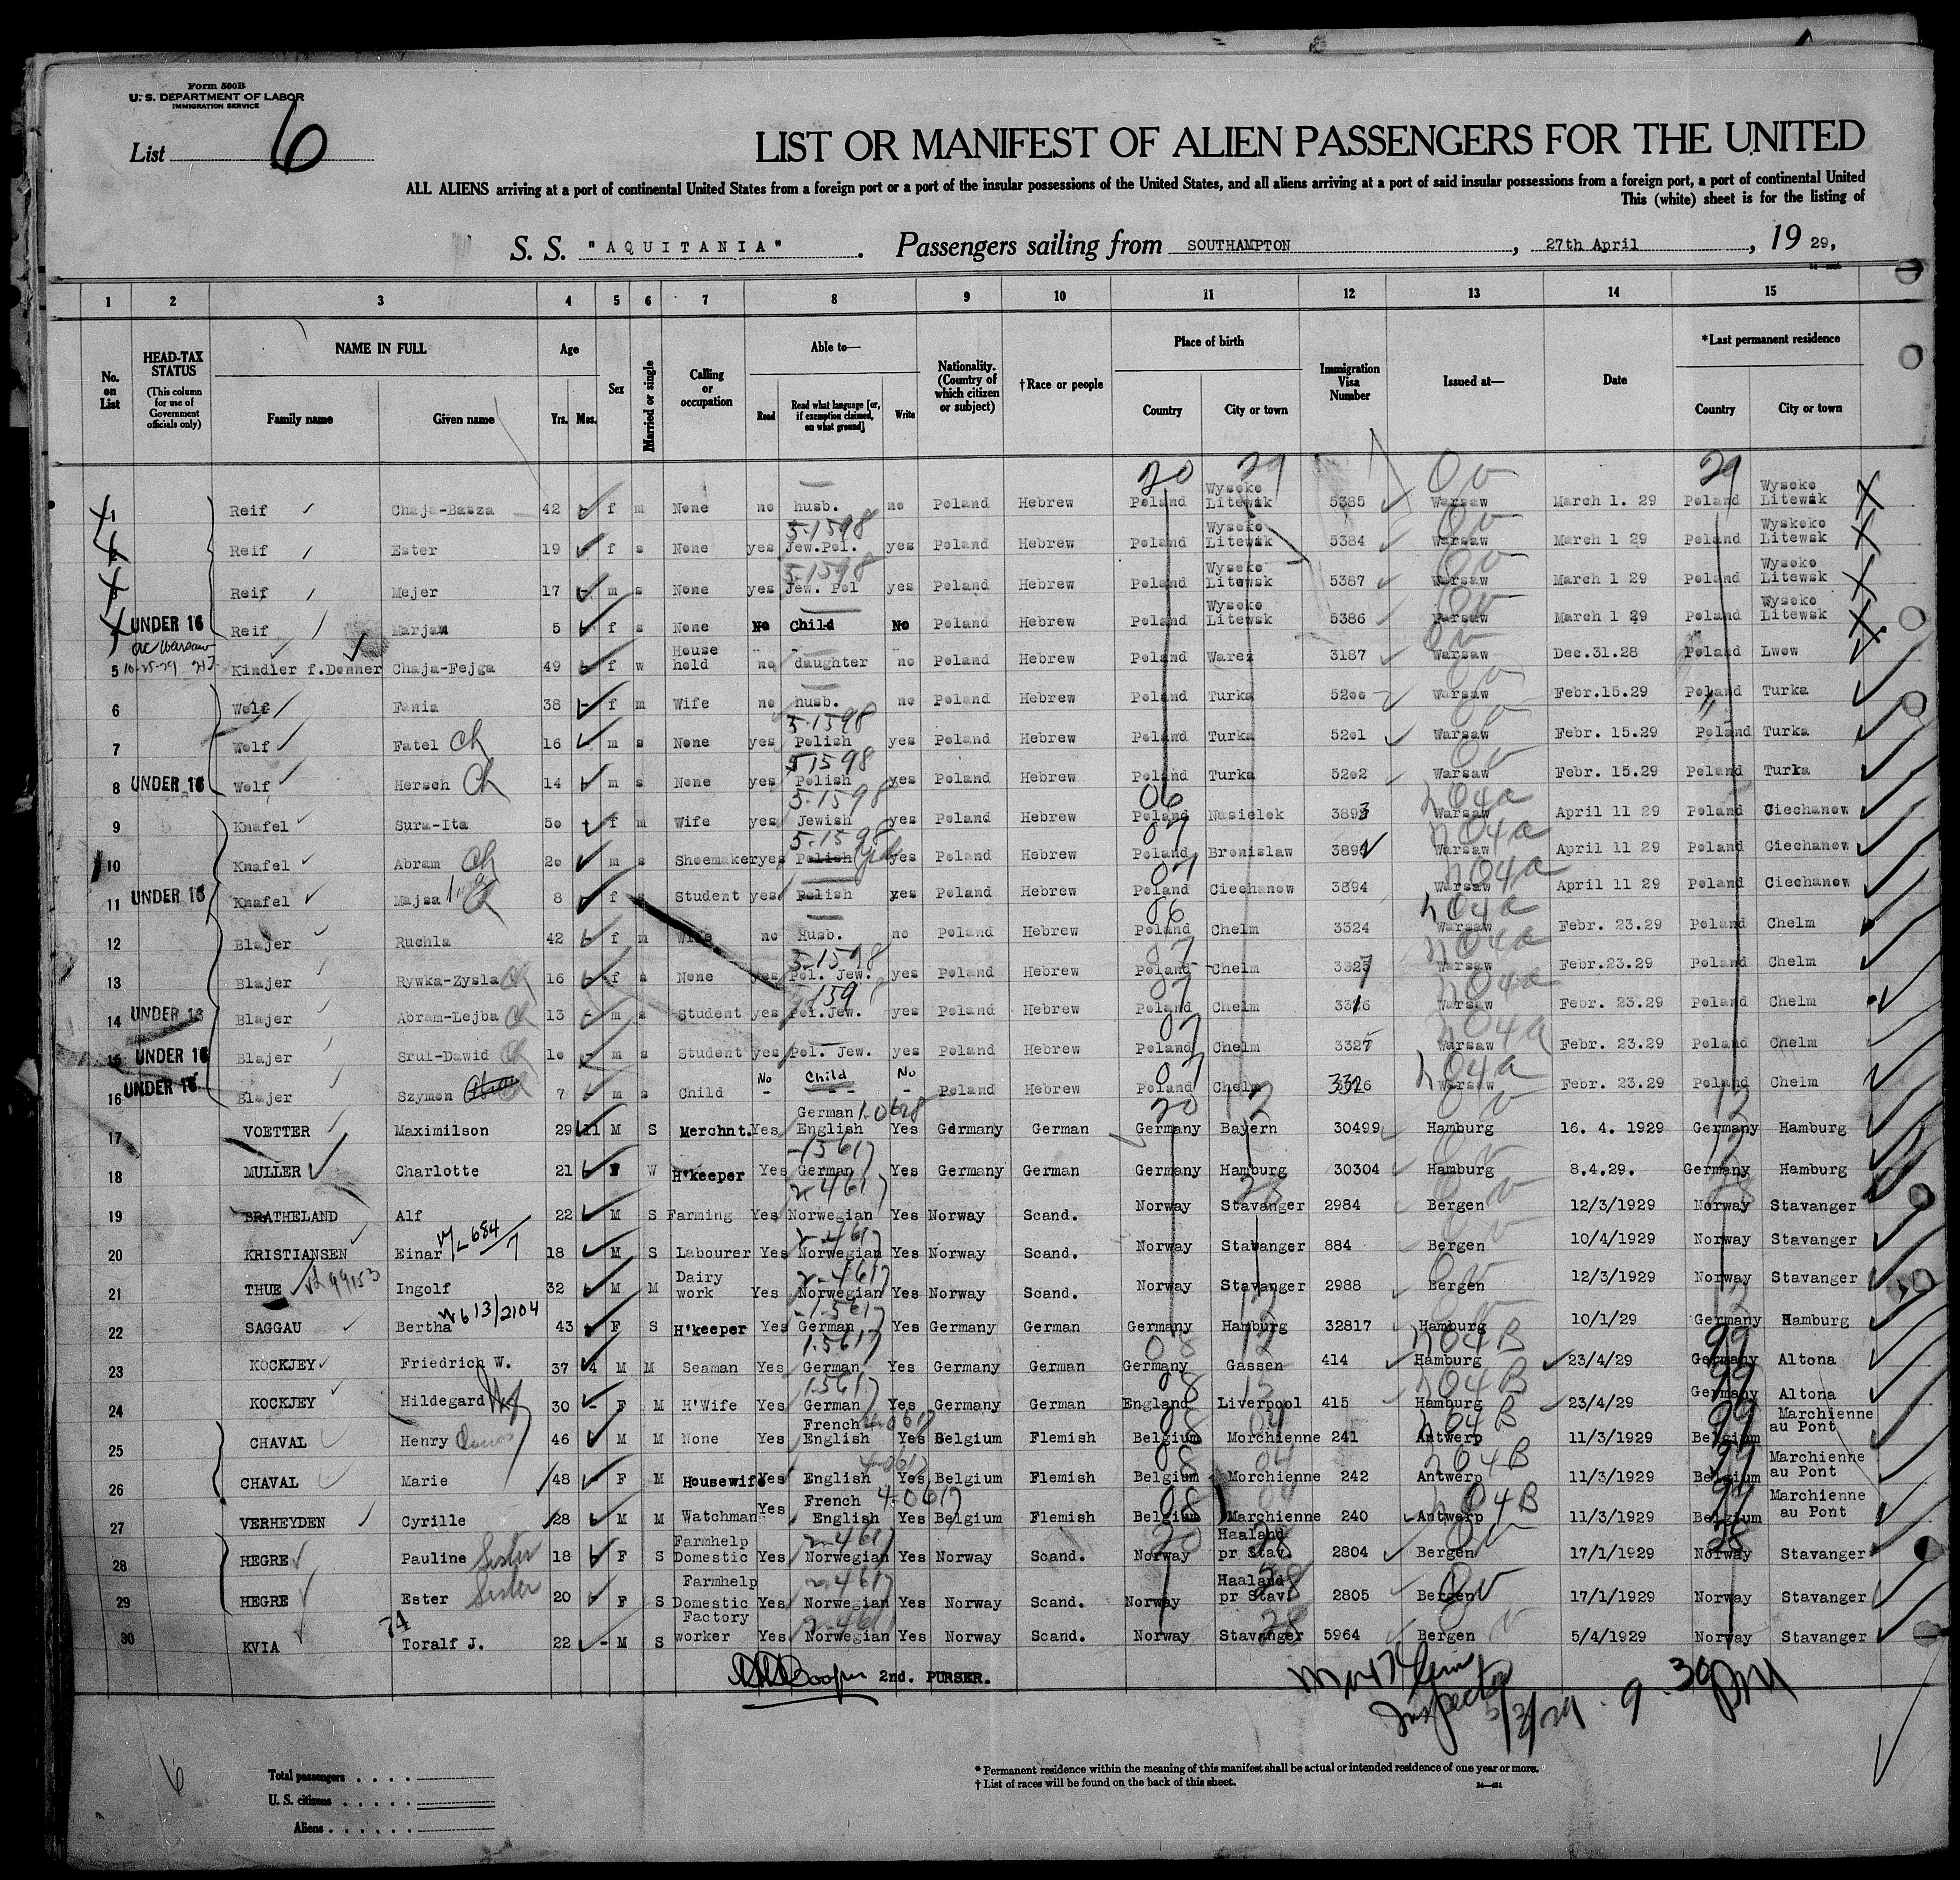 Form 500B
U. S. DEPARTMENT OF LABOR
IMMIGRATION SERVICE
List 6
LIST OR MANIFEST OF ALIEN PASSENGERS FOR THE UNITED
ALL ALIENS arriving at a port of continental United States from a foreign port or a port of the insular possessions of the United States, and all aliens arriving at a port of said insular possessions from a foreign port, a port of continental United
This (white) sheet is for the listing of
S. S. "AQUITANIA". Passengers sailing from SOUTHAMPTON, 27th April, 19 29,
1 2 3 4 5 6 7 8 9 10 11 12 13 14 15
No. on List
HEAD-TAX STATUS (This column for use of Government officials only)
NAME IN FULL Family name Given name
Age Yrs. Mos.
Sex
Married or single
Calling or occupation
Able to— Read Read what language [or, if exemption claimed, on what ground] Write
Nationality. (Country of which citizen or subject)
†Race or people
Place of birth Country City or town
Immigration Visa Number
Issued at—
Date
*Last permanent residence Country City or town
20 29 29
Reif Chaja-Basza 42 f m None no husb. no Poland Hebrew Poland Wysoko Litewsk 5385 Warsaw March 1. 29 Poland Wysoko Litewsk
5-1598
Reif Ester 19 f s None yes Jew.Pol. yes Poland Hebrew Poland Wysoko Litewsk 5384 Warsaw March 1 29 Poland Wyskoko Litewsk
5-1598
Reif Mejer 17 m s None yes Jew. Pol yes Poland Hebrew Poland Wysoko Litewsk 5387 Warsaw March 1 29 Poland Wysoko Litewsk
UNDER 16 Reif Marjam 5 f s None No Child No Poland Hebrew Poland Wysoko Litewsk 5386 Warsaw March 1 29 Poland Wysoko Litewsk
5 10-25-29 Kindler f.Donner Chaja-Fejga 49 f w House hold no daughter no Poland Hebrew Poland Warez 3187 Warsaw Dec.31.28 Poland Lwow
6 Wolf Fania 38 f m Wife no husb. no Poland Hebrew Poland Turka 52oo Warsaw Febr.15.29 Poland Turka
5-1598
7 Wolf Fatel Ch 16 m s None yes Polish yes Poland Hebrew Poland Turka 52o1 Warsaw Febr. 15.29 Poland Turka
5 1598
8 UNDER 16 Wolf Hersch Ch 14 m s None yes Polish yes Poland Hebrew Poland Turka 52o2 Warsaw Febr. 15.29 Poland Turka
5-1598 06 n04a
9 Knafel Sura-Ita 5o f m Wife yes Jewish yes Poland Hebrew Poland Nasielok 3893 Warsaw April 11 29 Poland Ciechanow
5-1598 07 n04a
10 Knafel Abram Ch 2o m s Shoemaker yes Polish yes Poland Hebrew Poland Bronislaw 389 Warsaw April 11 29 Poland Ciechanow
07 n04a
11 UNDER 16 Knafel Majsa 8 f s Student yes Polish yes Poland Hebrew Poland Ciechanow 3894 Warsaw April 11 29 Poland Ciechanow
06 n04a
12 Blajer Ruchla 42 f m Wife no Husb. no Poland Hebrew Poland Chelm 3324 Warsaw Febr. 23.29 Poland Chelm
5-1598 07 n04a
13 Blajer Rywka-Zysla Ch 16 f s None yes Pol. Jew. yes Poland Hebrew Poland Chelm 332 Warsaw Febr.23.29 Poland Chelm
07 n04a
14 UNDER 16 Blajer Abram-Lejba Ch 13 m s Student yes Pol.Jew. yes Poland Hebrew Poland Chelm 33 Warsaw Febr. 23.29 Poland Chelm
07 n04a
15 UNDER 16 Blajer Srul-Dawid Ch 1o m s Student yes Pol. Jew. yes Poland Hebrew Poland Chelm 3327 Warsaw Febr. 23.29 Poland Chelm
07 n04a
16 UNDER 16 Blajer Szymon 7 m s Child No Child No Poland Hebrew Poland Chelm Warsaw Febr. 23.29 Poland Chelm
20 12 12
17 VOETTER Maximilson 29 11 M S Merchnt. Yes German English Yes Germany German Germany Bayern 30499 Hamburg 16. 4. 1929 Germany Hamburg
1561
18 MULLER Charlotte 21 F W H'keeper Yes German Yes Germany German Germany Hamburg 30304 Hamburg 8.4.29. Germany Hamburg
2-4617 28 28
19 BRATHELAND Alf 22 M S Farming Yes Norwegian Yes Norway Scand. Norway Stavanger 2984 Bergen 12/3/1929 Norway Stavanger
2-4617
20 KRISTIANSEN Einar 18 M S Labourer Yes Norwegian Yes Norway Scand. Norway Stavanger 884 Bergen 10/4/1929 Norway Stavanger
2-4617
21 THUE Ingolf 32 M M Dairy work Yes Norwegian Yes Norway Scand. Norway Stavanger 2988 Bergen 12/3/1929 Norway Stavanger
1-5617 12 12
22 SAGGAU Bertha 613/2104 43 F S H'keeper Yes German Yes Germany German Germany Hamburg 32817 Hamburg 10/1/29 Germany Hamburg
1.5617 08 12 n04B 99
23 KOCKJEY Friedrich W. 37 4 M M Seaman Yes German Yes Germany German Germany Gassen 414 Hamburg 23/4/29 Germany Altona
15617 08 15 n04B 99
24 KOCKJEY Hildegard 30 - F M H'Wife Yes German Yes Germany German England Liverpool 415 Hamburg 23/4/29 Germany Altona
4-0617 08 04 n04B 99
25 CHAVAL Henry 46 M M None Yes French English Yes Belgium Flemish Belgium Morchienne 241 Antwerp 11/3/1929 Belgium Marchienne au Pont
4-0617 08 04 n04B 99
26 CHAVAL Marie 48 F M Housewife Yes English Yes Belgium Flemish Belgium Morchienne 242 Antwerp 11/3/1929 Belgium Marchienne au Pont
4-0617 08 04 n04B 99
27 VERHEYDEN Cyrille 28 M M Watchman Yes French English Yes Belgium Flemish Belgium Marchienne 240 Antwerp 11/3/1929 Belgium Marchienne au Pont
2-4617 20 28 28
28 HEGRE Pauline Sister 18 F S Farmhelp Domestic Yes Norwegian Yes Norway Scand. Norway Haaland pr Stav. 2804 Bergen 17/1/1929 Norway Stavanger
2-4617 28
29 HEGRE Ester Sister 20 F S Farmhelp Domestic Yes Norwegian Yes Norway Scand. Norway Haaland pr Stav. 2805 Bergen 17/1/1929 Norway Stavanger
74 2-4617 28
30 KVIA Toralf J. 22 - M S Factory worker Yes Norwegian Yes Norway Scand. Norway Stavanger 5964 Bergen 5/4/1929 Norway Stavanger
Cooper 2nd. PURSER.
Inspector 5/3/29 9.30PM
6
Total passengers . . . .
U. S. citizens . . . . .
Aliens . . . . . .
* Permanent residence within the meaning of this manifest shall be actual or intended residence of one year or more.
† List of races will be found on the back of this sheet.